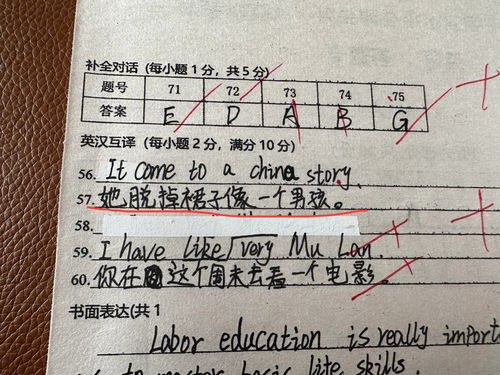 补全对话（每小题1分，共5分）
题号 71 72 73 74 75
答案 E D A B G
英汉互译（每小题2分，满分10分）
56. It come to a china story.
57. 她脱掉裙子像一个男孩。
58.
59. I have like very Mu Lan.
60. 你在这个周末去看一个电影。
书面表达(共1
Labor education is really import
to master basic life skills.